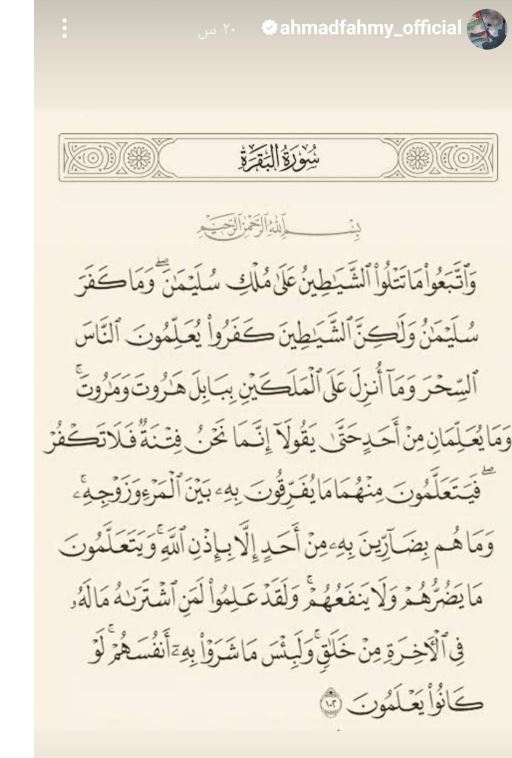 ahmadfahmy_official ٢٠ س
سُورَةُ البَقَرَةِ
بِسْمِ ٱللَّهِ ٱلرَّحْمَٰنِ ٱلرَّحِيمِ
وَٱتَّبَعُوا۟ مَا تَتْلُوا۟ ٱلشَّيَـٰطِينُ عَلَىٰ مُلْكِ سُلَيْمَـٰنَ ۖ وَمَا كَفَرَ
سُلَيْمَـٰنُ وَلَـٰكِنَّ ٱلشَّيَـٰطِينَ كَفَرُوا۟ يُعَلِّمُونَ ٱلنَّاسَ
ٱلسِّحْرَ وَمَآ أُنزِلَ عَلَى ٱلْمَلَكَيْنِ بِبَابِلَ هَـٰرُوتَ وَمَـٰرُوتَ ۚ
وَمَا يُعَلِّمَانِ مِنْ أَحَدٍ حَتَّىٰ يَقُولَآ إِنَّمَا نَحْنُ فِتْنَةٌ فَلَا تَكْفُرْ
ۖ فَيَتَعَلَّمُونَ مِنْهُمَا مَا يُفَرِّقُونَ بِهِۦ بَيْنَ ٱلْمَرْءِ وَزَوْجِهِۦ ۚ
وَمَا هُم بِضَآرِّينَ بِهِۦ مِنْ أَحَدٍ إِلَّا بِإِذْنِ ٱللَّهِ ۚ وَيَتَعَلَّمُونَ
مَا يَضُرُّهُمْ وَلَا يَنفَعُهُمْ ۚ وَلَقَدْ عَلِمُوا۟ لَمَنِ ٱشْتَرَىٰهُ مَا لَهُۥ
فِى ٱلْـَٔاخِرَةِ مِنْ خَلَـٰقٍ ۚ وَلَبِئْسَ مَا شَرَوْا۟ بِهِۦٓ أَنفُسَهُمْ ۚ لَوْ
كَانُوا۟ يَعْلَمُونَ ١٠٢